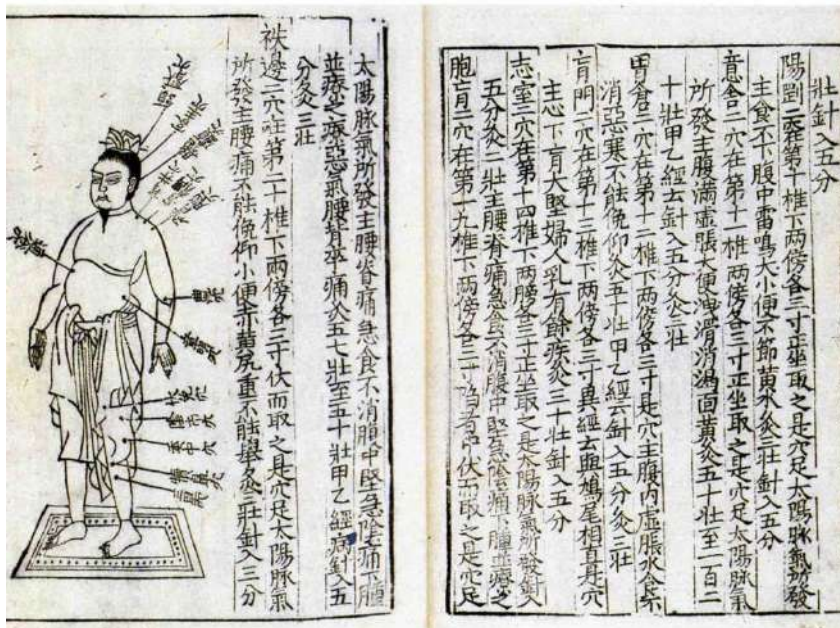 壯針入五分
陽剛二穴第十椎下兩傍各三寸正坐取之是穴足太陽脉氣所發
主食不下腹中雷鳴大小便不節黄水灸三壯針入五分
意舍二穴在第十一椎兩傍各三寸正坐取之是穴足太陽脉氣
所發主腹滿虛張大便洩滑消渴面黄灸五十壯至一百二
十壯甲乙經云針入五分灸三壯
胃倉二穴在第十二椎下兩傍各三寸是穴主腹内虛脹水食不
消惡寒不能俛仰灸五十壯甲乙經云針入五分灸三壯
肓門二穴在第十三椎下兩傍各三寸異經云與鳩尾相直是穴
主心下肓大堅婦人乳有餘疾灸三十壯針入五分
志室二穴在第十四椎下兩膀各三寸正坐取之是太陽脉氣所發針入
五分灸三壯主腰脊痛急食不消腹中堅急陰痛下腫並療之
胞肓二穴在第一九椎下兩傍各三寸陷者中伏而取之是穴足
太陽脉氣所發主腰脊痛急食不消腹中堅急陰痛下腫
並療之療惡氣腰背卒痛灸五七壯至五十壯甲乙經云針入五
分灸三壯
秩邊二穴在第二十椎下兩傍各三寸伏而取之是穴足太陽脉氣
所發主腰痛不能俛仰小便赤黄尻重不能舉灸三壯針入三分
伏兔穴
陰市穴
委中穴
犢鼻穴
三里穴